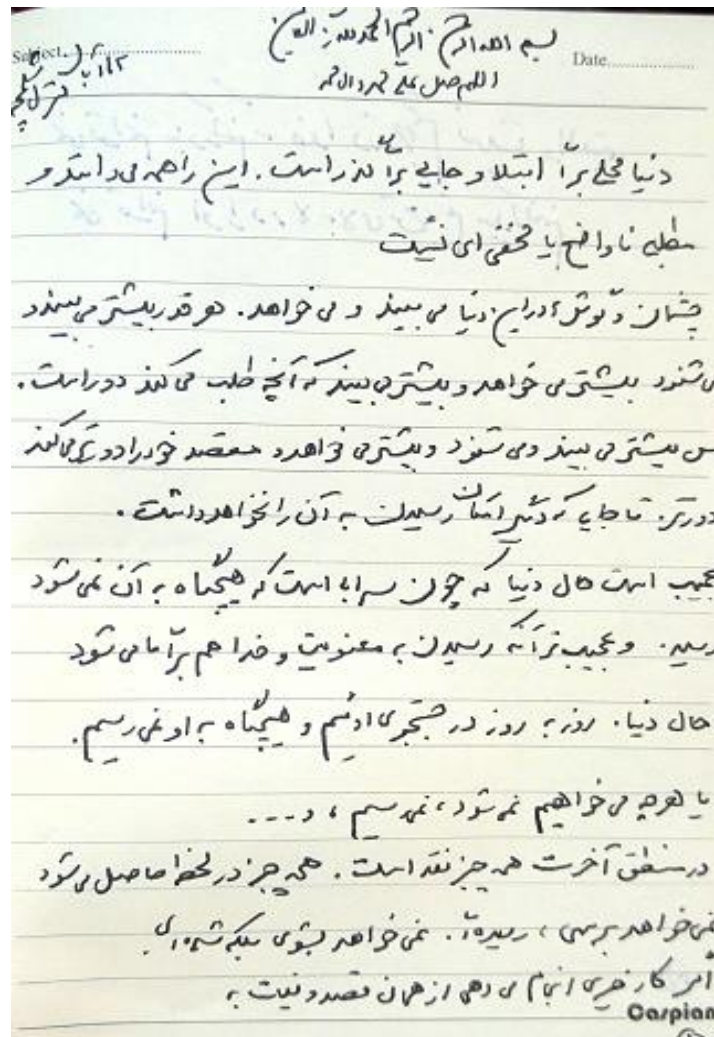 بسم الله الرحمن الرحیم الحمدلله رب العالمین
Subject
Date
اللهم صل علی محمد و آل محمد
دنیا محلی برای ابتلا و جایی برای گذر است. این را همه می دانند و
مطلب نا واضح یا مخفی ای نیست
چشمان و گوش ها در این دنیا می بیند و می خواهد. هر قدر بیشتر می بیند و
می شنود بیشتر می خواهد و بیشتر می بیند که آنچه طلب می کند دور است.
پس بیشتر می بیند و می شنود و بیشتر می خواهد و مقصد خود را دورتر می کند
دورتر. تا جایی که دیگر امکان رسیدن به آن را نخواهد داشت.
عجیب است حال دنیا که چون سرابی است که هیچگاه به آن نمی شود
رسید. و عجیب تر آنکه رسیدن به معنویت و خدا هم برای ما می شود
حال دنیا. روز به روز در جستجوی اوئیم و هیچگاه به او نمی رسیم.
یا هرچه می خواهیم نمی شود، نمی رسیم، و....
در منطق آخرت همه چیز نقد است. همه چیز در لحظه حاصل می شود
نمی خواهد برسی، رسیده ای. نمی خواهد بشوی بلکه شده ای.
اگر کار خیری انجام می دهی از همان قصد و نیت به
Caspian